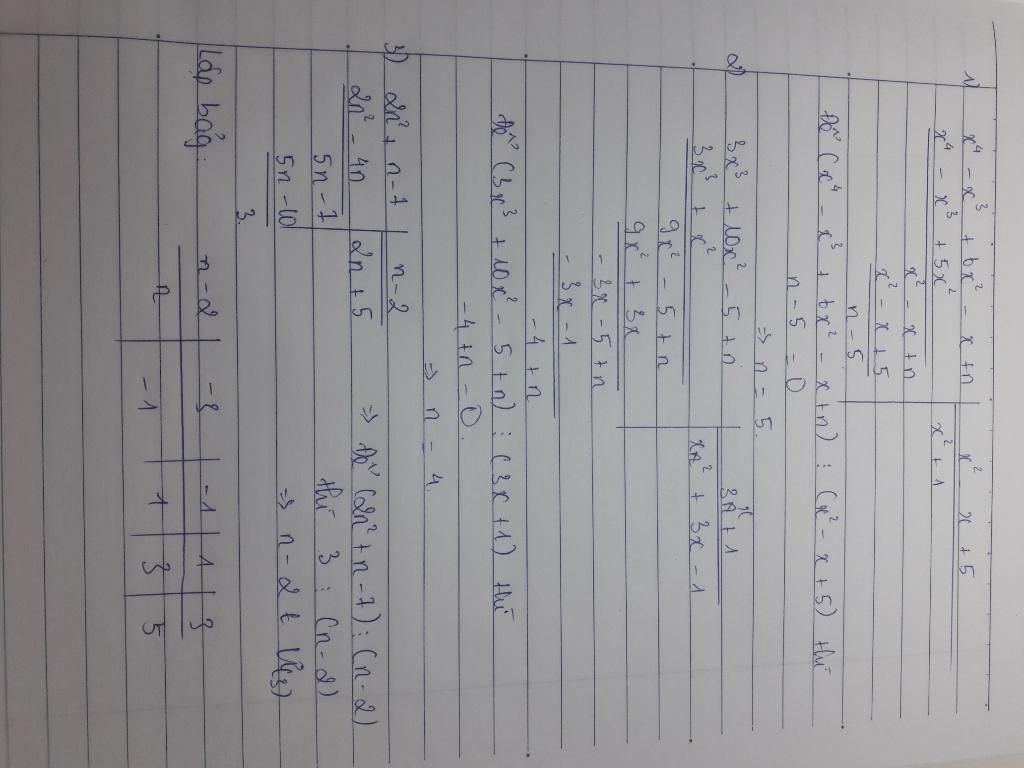 1) x⁴ - x³ + 6x² - x + n | x² - x + 5
x⁴ - x³ + 5x² | x² + 1
x² - x + n
x² - x + 5
n - 5
để (x⁴ - x³ + 6x² - x + n) : (x² - x + 5) thì
n - 5 = 0
=> n = 5.
2) 3x³ + 10x² - 5 + n | 3x + 1
3x³ + x² | x² + 3x - 1
9x² - 5 + n
9x² + 3x
- 3x - 5 + n
- 3x - 1
- 4 + n
để (3x³ + 10x² - 5 + n) : (3x + 1) thì
- 4 + n = 0.
=> n = 4.
3) 2n² + n - 7 | n - 2
2n² - 4n | 2n + 5 => để (2n² + n - 7) : (n - 2)
5n - 7 thì 3 : (n - 2)
5n - 10 => n - 2 ∈ Ư(3)
3.
Lập bảg: n - 2 | -3 | -1 | 1 | 3
n | -1 | 1 | 3 | 5